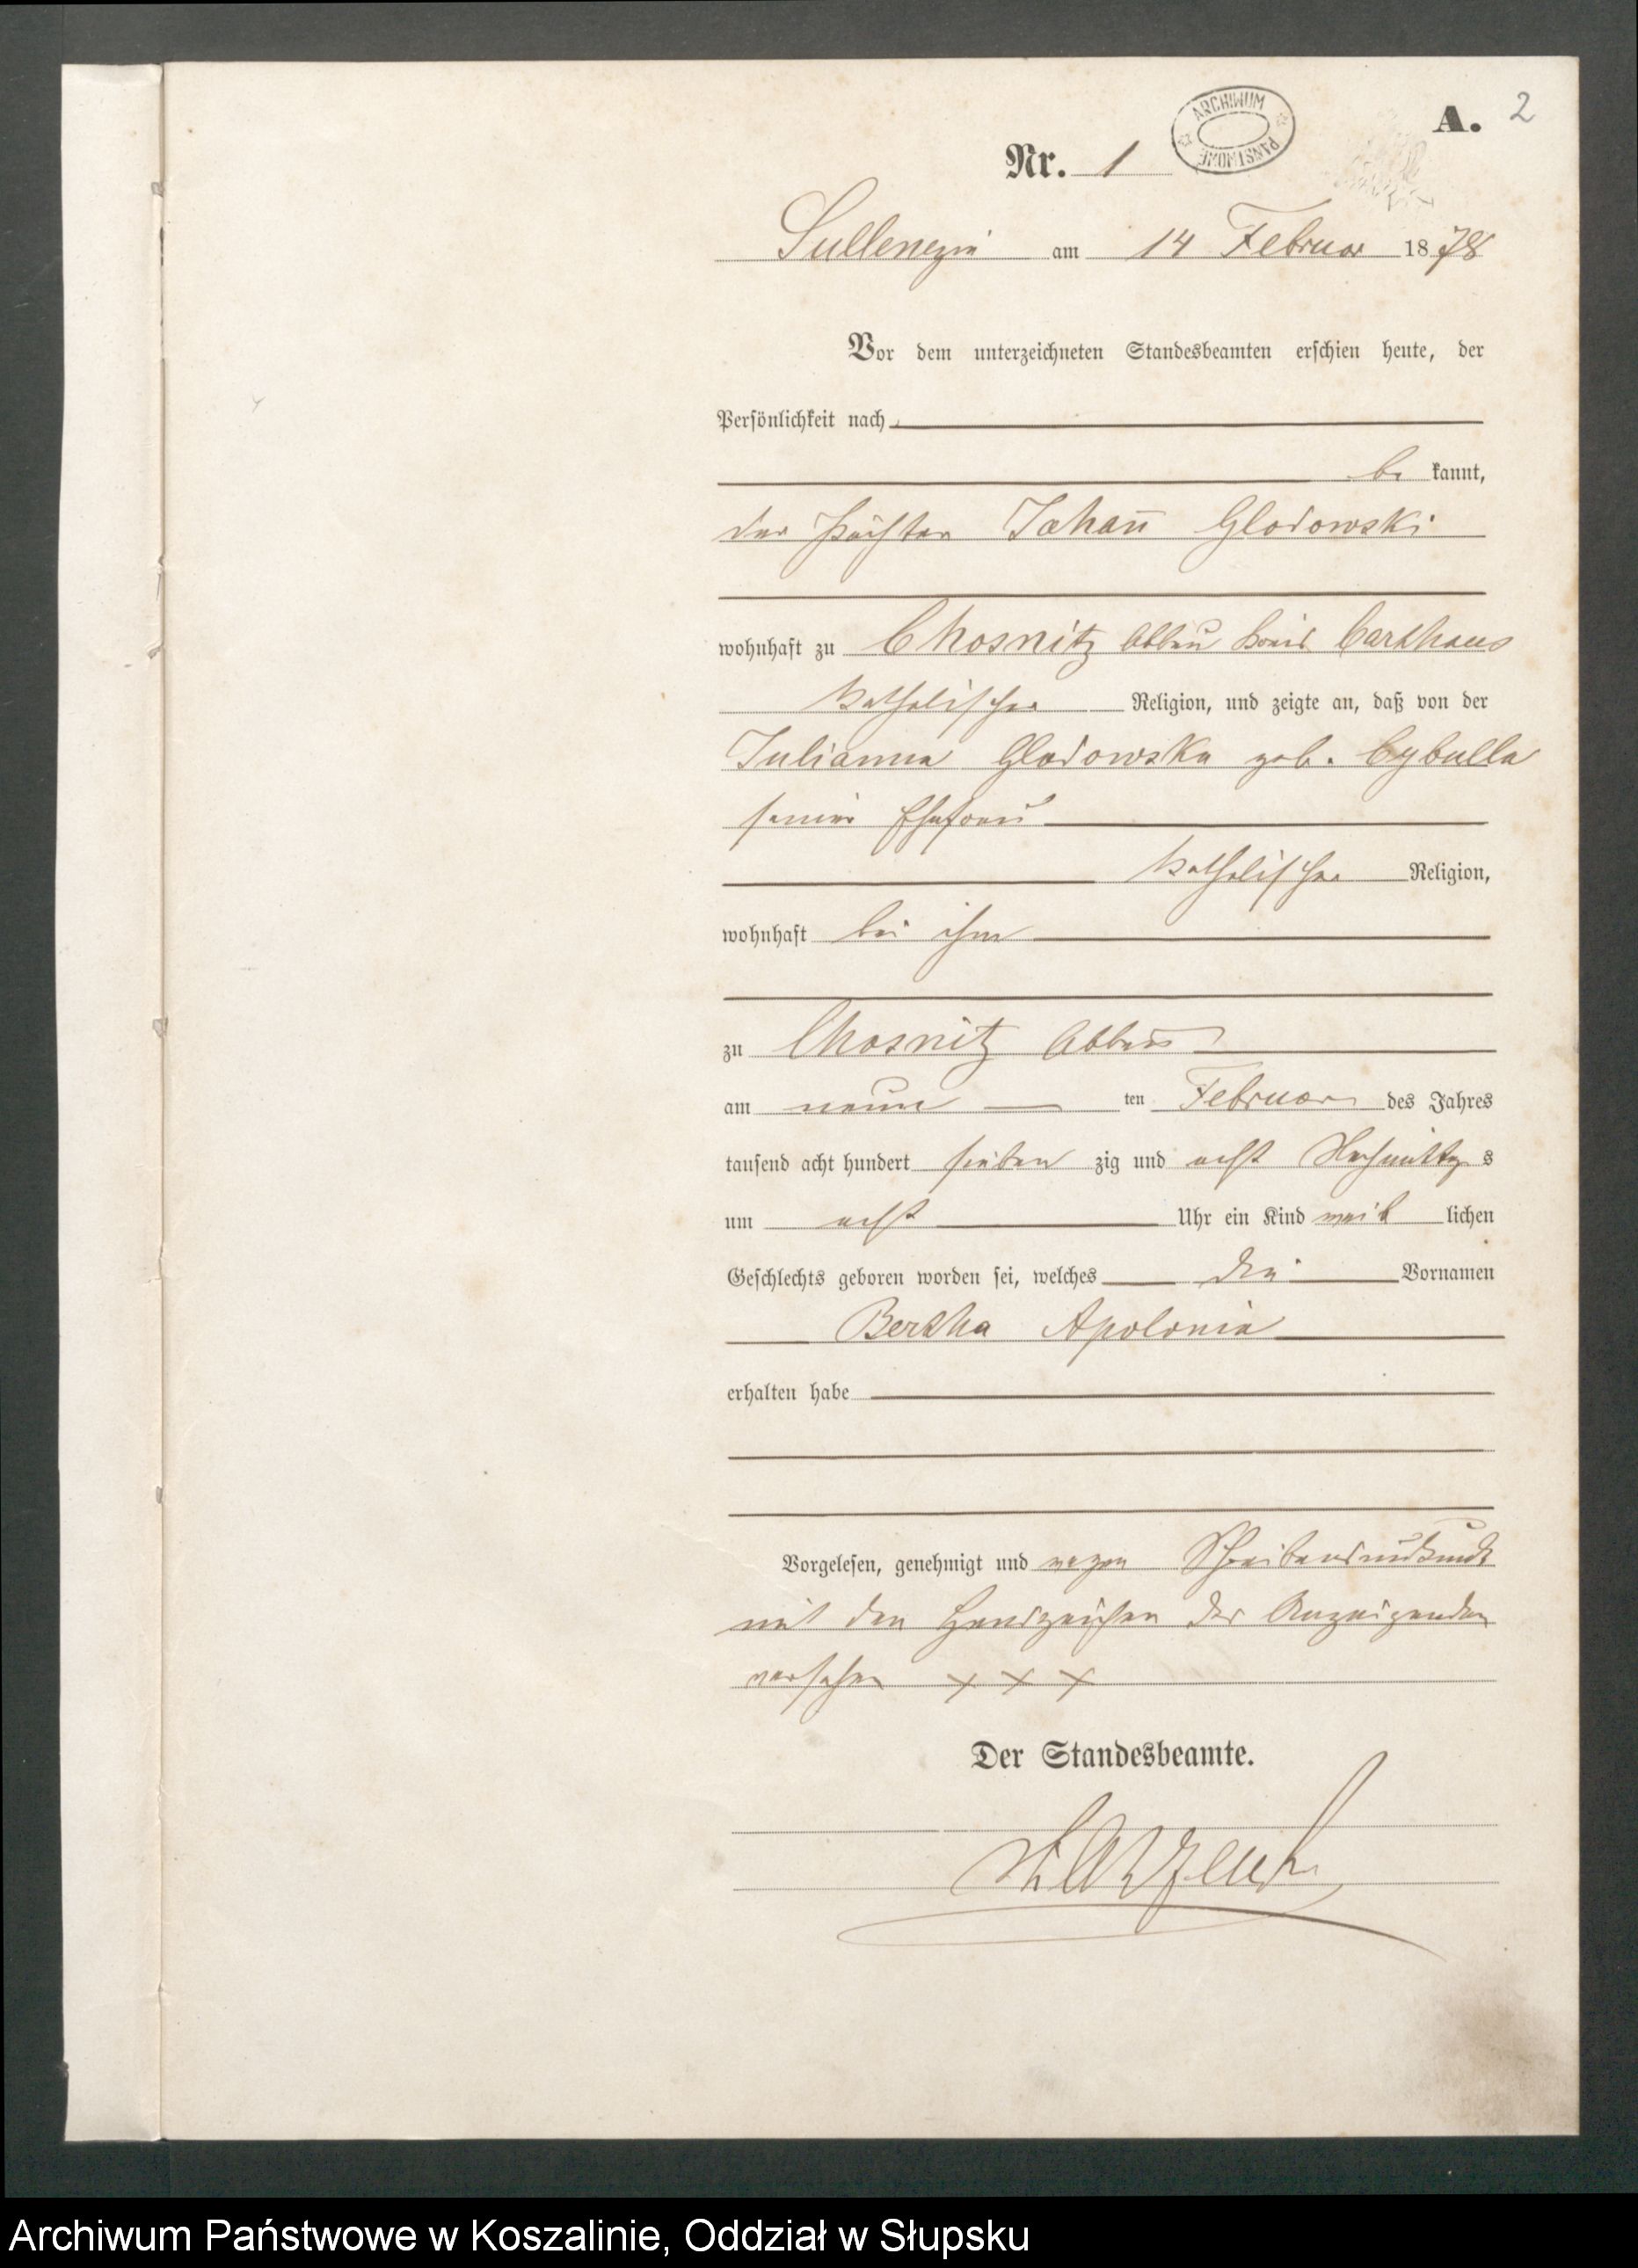 A. 2
ARCHIWUM PAŃSTWOWE
Nr. 1
Sullenczin am 14 Februar 1878
Vor dem unterzeichneten Standesbeamten erschien heute, der
Persönlichkeit nach
be kannt,
der Pächter Johann Glodowski
wohnhaft zu Chosnitz Abbau Kreis Carthaus
katholischer Religion, und zeigte an, daß von der
Julianna Glodowska geb. Cybulla
seiner Ehefrau
katholischer Religion,
wohnhaft bei ihm
zu Chosnitz Abbau
am neun ten Februar des Jahres
tausend acht hundert sieben zig und acht Nachmittags
um acht Uhr ein Kind weib lichen
Geschlechts geboren worden sei, welches die Vornamen
Bertha Apolonia
erhalten habe
Vorgelesen, genehmigt und wegen Schreibensunkunde
mit den Handzeichen des Anzeigenden
versehen + + +
Der Standesbeamte.
Archiwum Państwowe w Koszalinie, Oddział w Słupsku